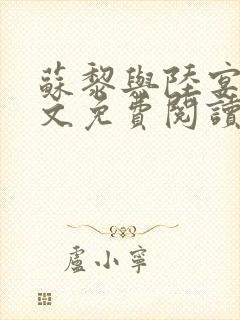 蘇黎與陸宴
文免費閱讀
盧小寧